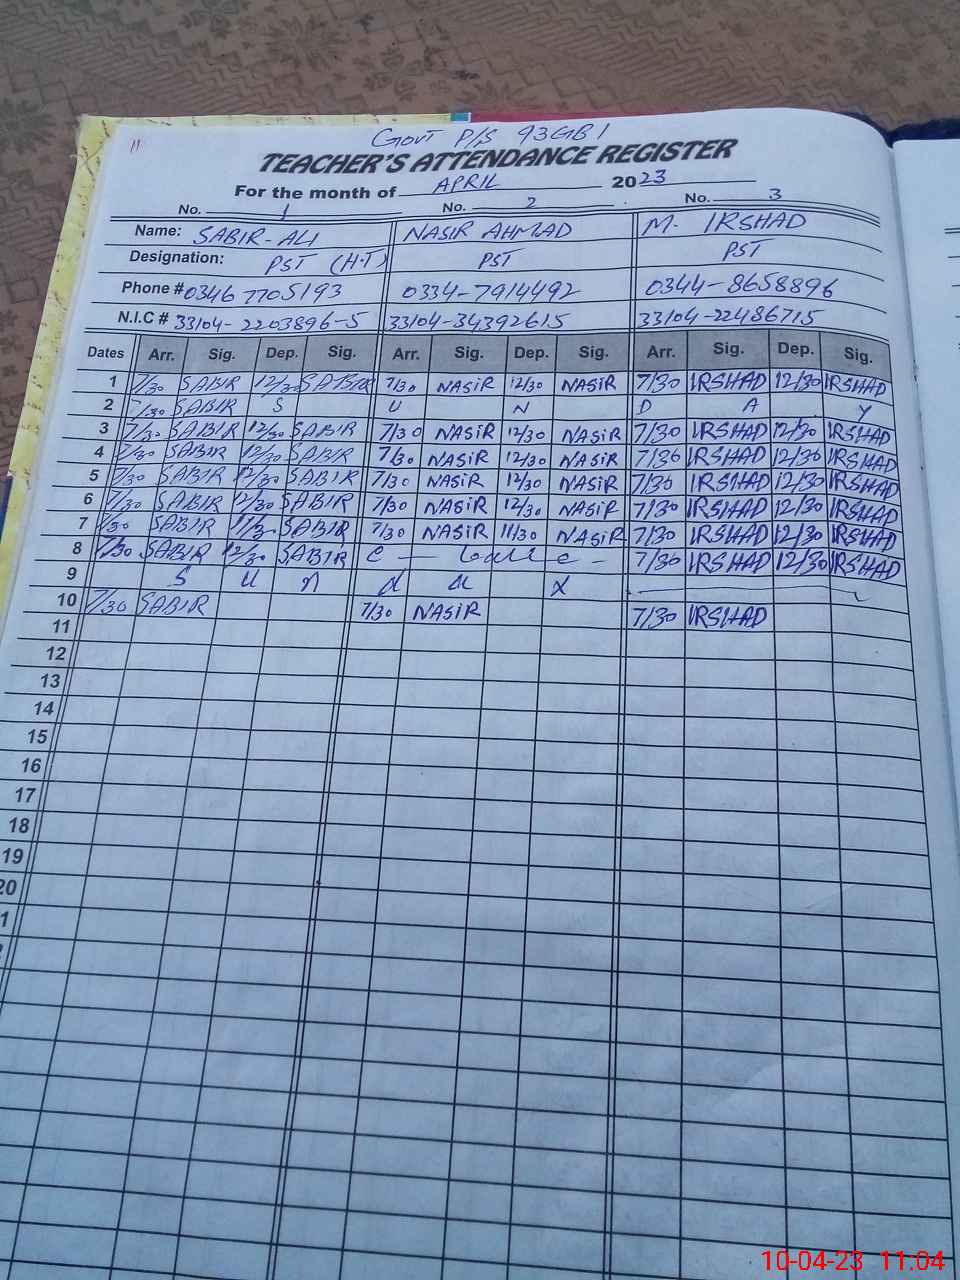 11
GOVT P/S 93GB1
TEACHER'S ATTENDANCE REGISTER
For the month of APRIL 2023
No. 1 No. 2 No. 3
Name: SABIR-ALI NASIR AHMAD M. IRSHAD
Designation: PST (H.T) PST PST
Phone # 0346 7705193 0334-7914492 0344-8658896
N.I.C # 33104-2203896-5 33104-34392615 33104-22486715
Dates Arr. Sig. Dep. Sig. Arr. Sig. Dep. Sig. Arr. Sig. Dep. Sig.
1 7/30 SABIR 12/30 SABIR 7/30 NASIR 12/30 NASIR 7/30 IRSHAD 12/30 IRSHAD
2 7/30 SABIR S U N D A Y
3 7/30 SABIR 12/30 SABIR 7/30 NASIR 12/30 NASIR 7/30 IRSHAD 12/30 IRSHAD
4 7/30 SABIR 12/30 SABIR 7/30 NASIR 12/30 NASIR 7/30 IRSHAD 12/30 IRSHAD
5 7/30 SABIR 12/30 SABIR 7/30 NASIR 12/30 NASIR 7/30 IRSHAD 12/30 IRSHAD
6 7/30 SABIR 12/30 SABIR 7/30 NASIR 12/30 NASIR 7/30 IRSHAD 12/30 IRSHAD
7 7/30 SABIR 11/30 SABIR 7/30 NASIR 11/30 NASIR 7/30 IRSHAD 12/30 IRSHAD
8 7/30 SABIR 12/30 SABIR C 7/30 IRSHAD 12/30 IRSHAD
9 S u n d a y
10 7/30 SABIR 7/30 NASIR 7/30 IRSHAD
11
12
13
14
15
16
17
18
19
20
10-04-23 11:04